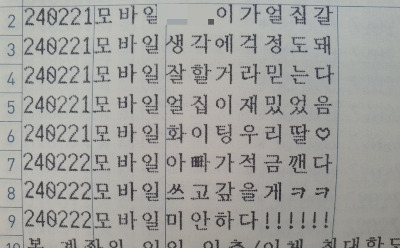 2 240221모바일 이가얼집갈
3 240221모바일생각에걱정도돼
4 240221모바일잘할거라믿는다
5 240221모바일얼집이재밌었음
6 240221모바일화이팅우리딸♡
7 240222모바일아빠가적금깬다
8 240222모바일쓰고갚을개ㅋㅋ
9 240222모바일미안하다!!!!!!